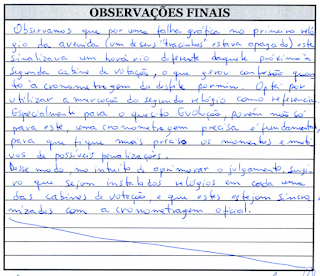 OBSERVAÇÕES FINAIS
Observamos que por uma falha gráfica no primeiro reló
gio da avenida (um de seus "tracinhos" estava apagado) este
sinalizava um horário diferente daquele próximo à
segunda cabine de votação, o que gerou confusão quan
to à cronometragem do desfile por mim. Optei por
utilizar a marcação do segundo relógio como referência.
Especialmente para o quesito Evolução, porém não só
para este, uma cronometragem precisa é fundamental,
para que fique mais preciso os momentos e moti
vos de possíveis penalizações.
Desse modo, no intuito de aprimorar o julgamento, sugi
ro que sejam instalados relógios em cada uma
das cabines de votação, e que estes estejam sincro
nizados com a cronometragem oficial.